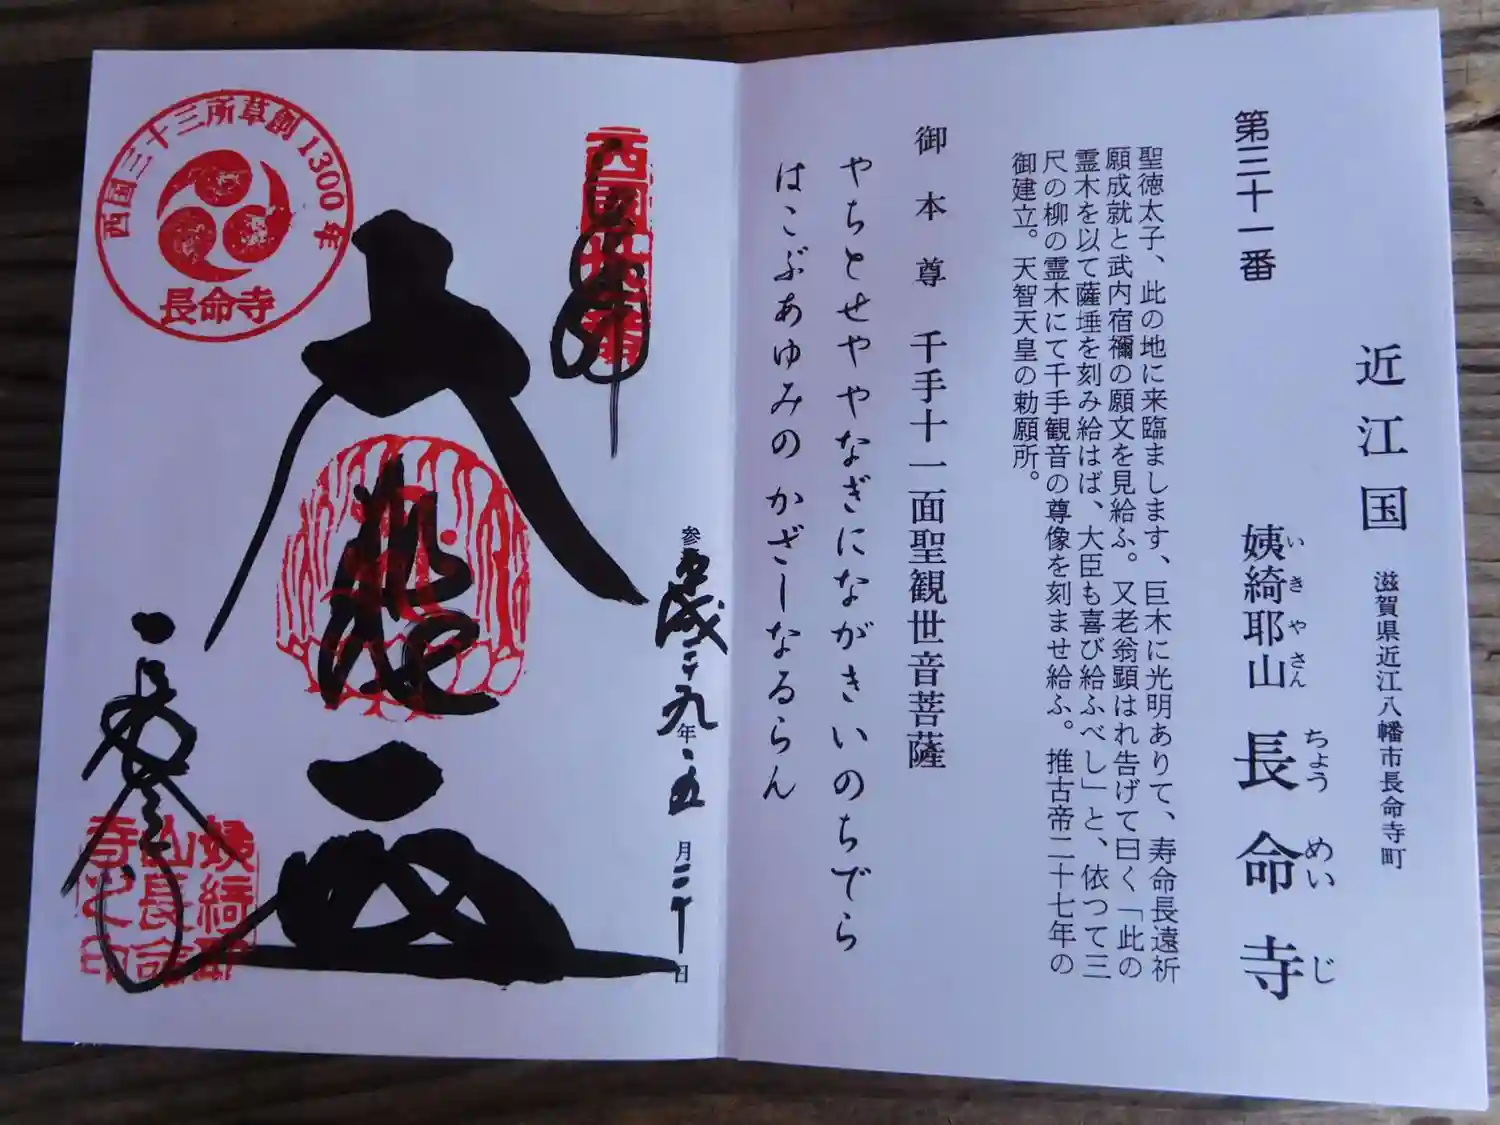 近江国 滋賀県近江八幡市長命寺町
第三十一番
姨綺耶山 長命寺
いきやさん ちょうめいじ
聖徳太子、此の地に来臨まします、巨木に光明ありて、寿命長遠祈
願成就と武内宿禰の願文を見給ふ。又老翁顕はれ告げて曰く「此の
霊木を以て薩埵を刻み給はば、大臣も喜び給ふべし」と、依つて三
尺の柳の霊木にて千手観音の尊像を刻ませ給ふ。推古帝二十七年の
御建立。天智天皇の勅願所。
御本尊 千手十一面聖観世音菩薩
やちとせややなぎにながきいのちでら
はこぶあゆみのかざしなるらん
西國三十三所草創1300年
長命寺
西國卅一番
二九年 五月二十日
姨綺耶
山長命
寺之印